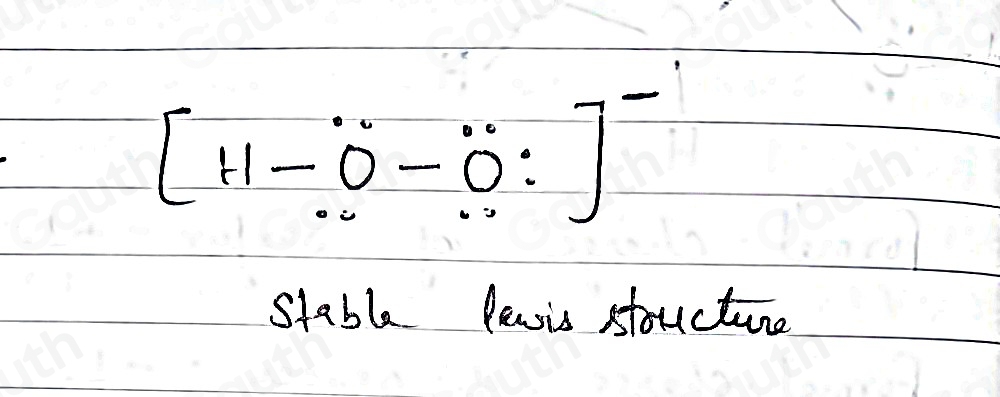 [H–Ö–Ö:]⁻
Stable lewis structure